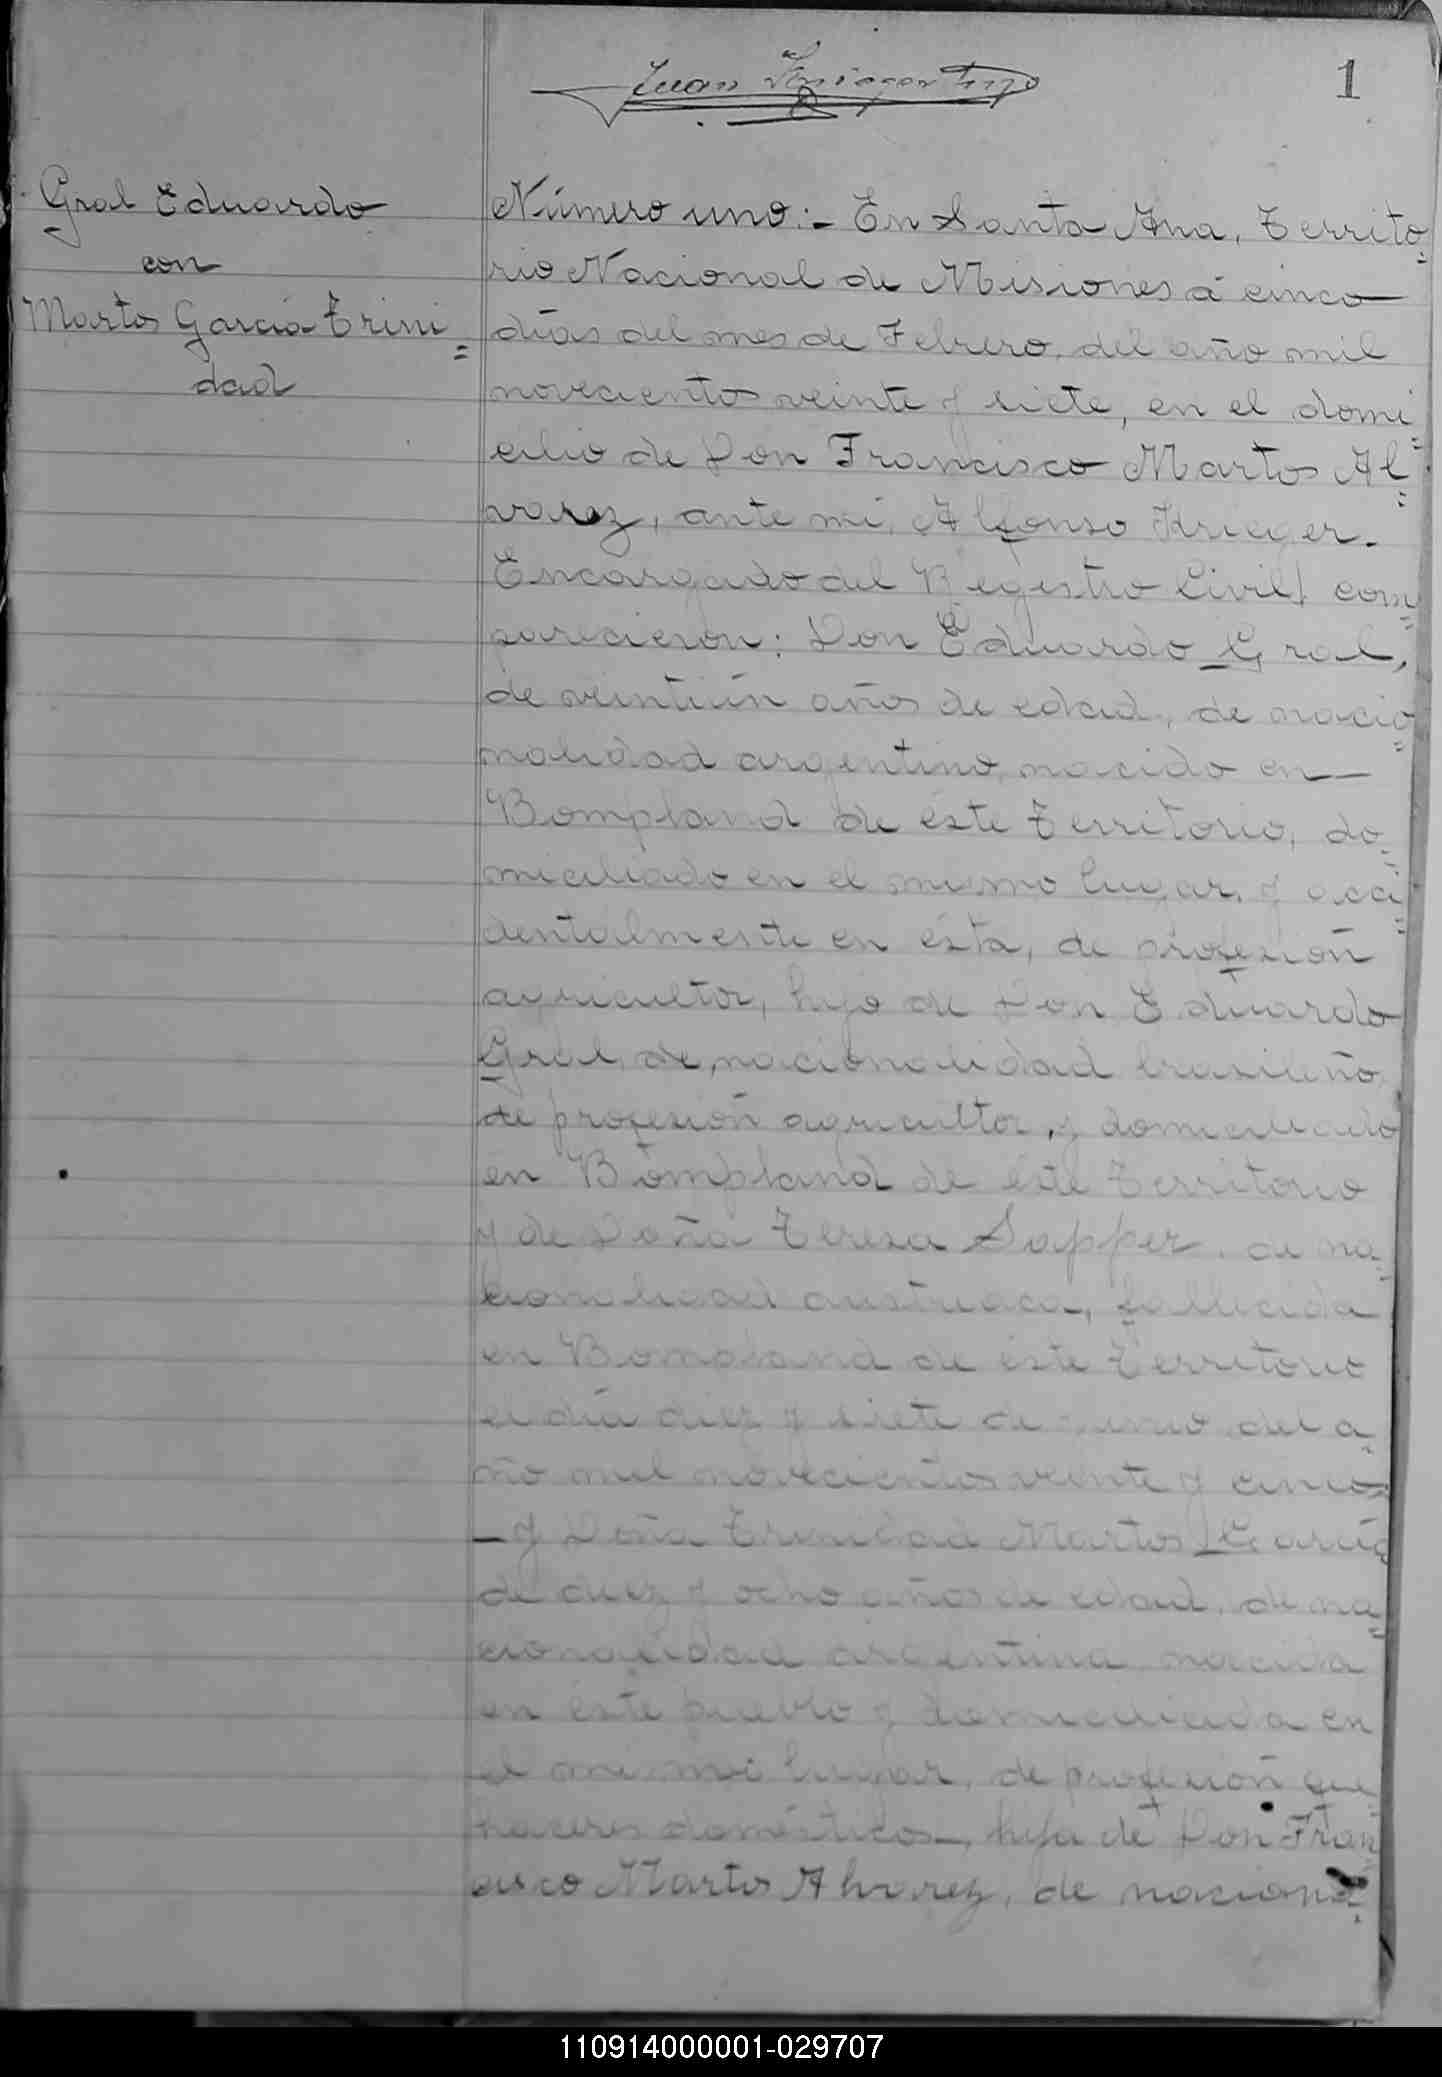 Juan
1
Gral Eduardo
con
Martos García Trini=
dad
Número uno:- En Santa Ana, Territo=
rio Nacional de Misiones á cinco—
días del mes de Febrero, del año mil
noveciento veinte y siete, en el domi=
cilio de Don Francisco Martos Al=
varez, ante mi, Alfonso Krieger.
Encargado del Registro Civil, com=
parecieron: Don Eduardo Gral,
de veintiún años de edad, de nacio=
nalidad argentino, nacido en—
Bompland de éste Territorio, do=
miciliado en el mismo lugar, y acci=
dentalmente en ésta, de profesión
agricultor, hijo de Don Eduardo
Gral, de nacionalidad brasileño,
de profesión agricultor, y domiciliado
en Bompland de éste Territorio
y de Doña Teresa Sapper, de na=
cionalidad austriaca, fallecida
en Bompland de éste Territorio
el día diez y siete de del a=
ño mil novecientos veinte y cinco
- y Doña Trinidad Martos García
de diez y ocho años de edad, de na=
cionalidad argentina, nacida
en éste pueblo y domiciliada en
el mismo lugar, de profesión que=
haceres domésticos, hija de Don Fran=
cisco Martos Alvarez, de naciona=
110914000001-029707